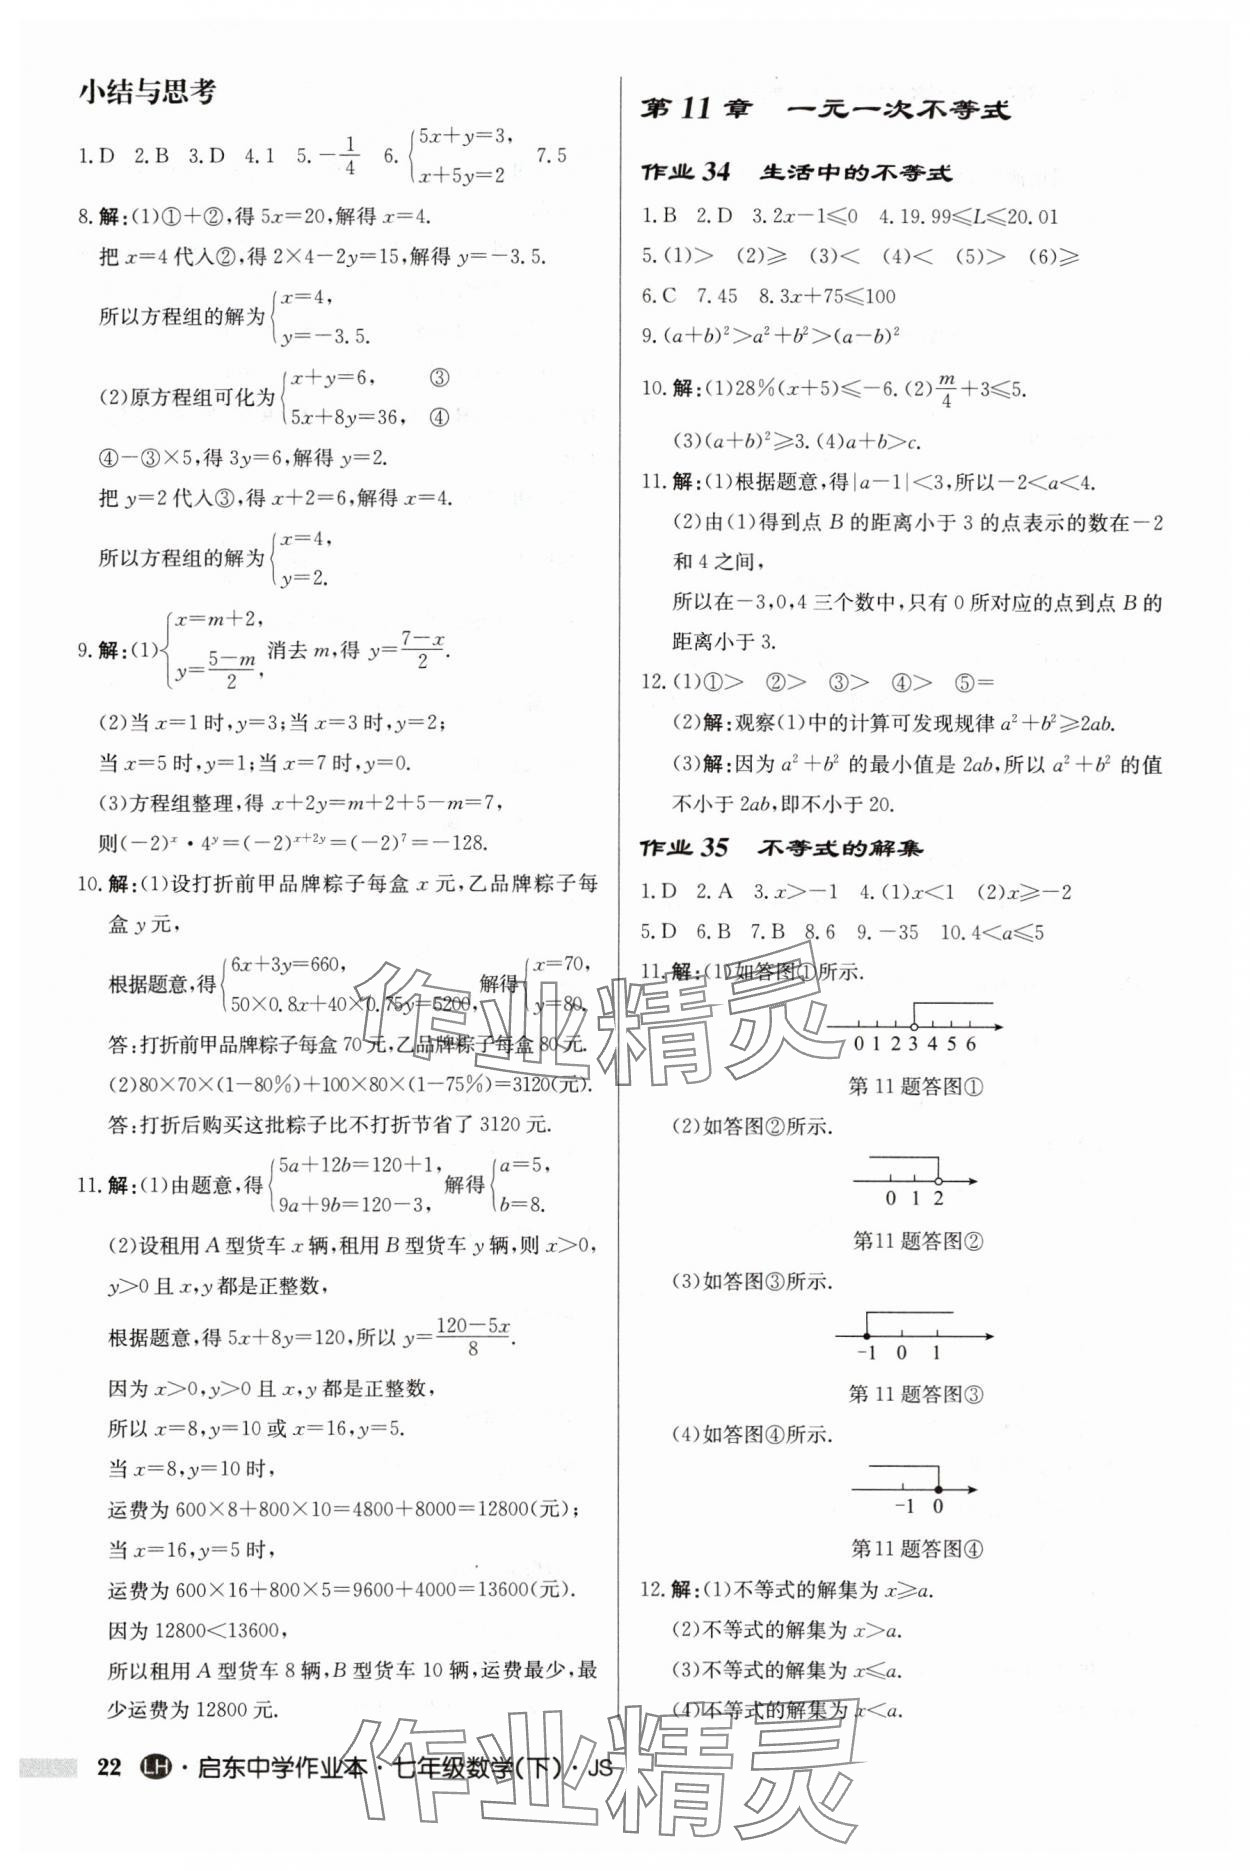 小结与思考
1.D 2.B 3.D 4.1 5.-1/4 6.{5x+y=3, x+5y=2 7.5
8.解:(1)①+②,得5x=20,解得x=4.
把x=4代入②,得2×4-2y=15,解得y=-3.5.
所以方程组的解为{x=4, y=-3.5.
(2)原方程组可化为{x+y=6, ③ 5x+8y=36, ④
④-③×5,得3y=6,解得y=2.
把y=2代入③,得x+2=6,解得x=4.
所以方程组的解为{x=4, y=2.
9.解:(1){x=m+2, y=(5-m)/2, 消去m,得y=(7-x)/2.
(2)当x=1时,y=3;当x=3时,y=2;
当x=5时,y=1;当x=7时,y=0.
(3)方程组整理,得x+2y=m+2+5-m=7,
则(-2)ˣ·4ʸ=(-2)ˣ⁺²ʸ=(-2)⁷=-128.
10.解:(1)设打折前甲品牌粽子每盒x元,乙品牌粽子每
盒y元,
根据题意,得{6x+3y=660, 50×0.8x+40×0.75y=5200, 解得{x=70, y=80.
答:打折前甲品牌粽子每盒70元,乙品牌粽子每盒80元.
(2)80×70×(1-80%)+100×80×(1-75%)=3120(元).
答:打折后购买这批粽子比不打折节省了3120元.
11.解:(1)由题意,得{5a+12b=120+1, 9a+9b=120-3, 解得{a=5, b=8.
(2)设租用A型货车x辆,租用B型货车y辆,则x>0,
y>0且x,y都是正整数,
根据题意,得5x+8y=120,所以y=(120-5x)/8.
因为x>0,y>0且x,y都是正整数,
所以x=8,y=10或x=16,y=5.
当x=8,y=10时,
运费为600×8+800×10=4800+8000=12800(元);
当x=16,y=5时,
运费为600×16+800×5=9600+4000=13600(元).
因为12800<13600,
所以租用A型货车8辆,B型货车10辆,运费最少,最
少运费为12800元.
22 LH·启东中学作业本·七年级数学(下)·JS
第11章 一元一次不等式
作业34 生活中的不等式
1.B 2.D 3.2x-1≤0 4.19.99≤L≤20.01
5.(1)> (2)≥ (3)< (4)< (5)> (6)≥
6.C 7.45 8.3x+75≤100
9.(a+b)²>a²+b²>(a-b)²
10.解:(1)28%(x+5)≤-6.(2)m/4+3≤5.
(3)(a+b)²≥3.(4)a+b>c.
11.解:(1)根据题意,得|a-1|<3,所以-2<a<4.
(2)由(1)得到点B的距离小于3的点表示的数在-2
和4之间,
所以在-3,0,4三个数中,只有0所对应的点到点B的
距离小于3.
12.(1)①> ②> ③> ④> ⑤=
(2)解:观察(1)中的计算可发现规律a²+b²≥2ab.
(3)解:因为a²+b²的最小值是2ab,所以a²+b²的值
不小于2ab,即不小于20.
作业35 不等式的解集
1.D 2.A 3.x>-1 4.(1)x<1 (2)x≥-2
5.D 6.B 7.B 8.6 9.-35 10.4<a≤5
11.解:(1)如答图①所示.
0 1 2 3 4 5 6
第11题答图①
(2)如答图②所示.
0 1 2
第11题答图②
(3)如答图③所示.
-1 0 1
第11题答图③
(4)如答图④所示.
-1 0
第11题答图④
12.解:(1)不等式的解集为x≥a.
(2)不等式的解集为x>a.
(3)不等式的解集为x≤a.
(4)不等式的解集为x<a.
作业精灵
作业精灵